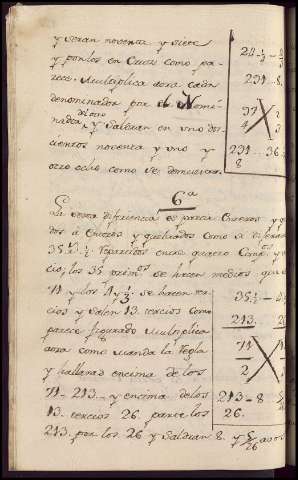 y seran noventa y siete
y ponlos en Cruz como pa-
rece. Multiplica aora cada
denominador por el Nomi-
nador del otro, y Saldran en uno dos-
cientos noventa y uno y
otro ocho como se demuestra.
24 ¼
291 8
97 2
4 3
291 36
8
6ª
La sexta diferencia es partir Enteros y
dos á Enteros y quebrados como si
35 ½ repartidos entre quatro Comp.s y
cio; los 35 y medios se hacen medios que
71 y los 4 y ⅓ se hacen ter-
cios y Salen 13 tercios como
parece figurado multiplica
aora como manda la regla
y hallaras encima de los
71 - 213 - y encima de los
13 tercios 26 parte los
213 por los 26 y Saldran 8 y 5/26 avos
35 ½
213
71
2
213 - 8 5
26.